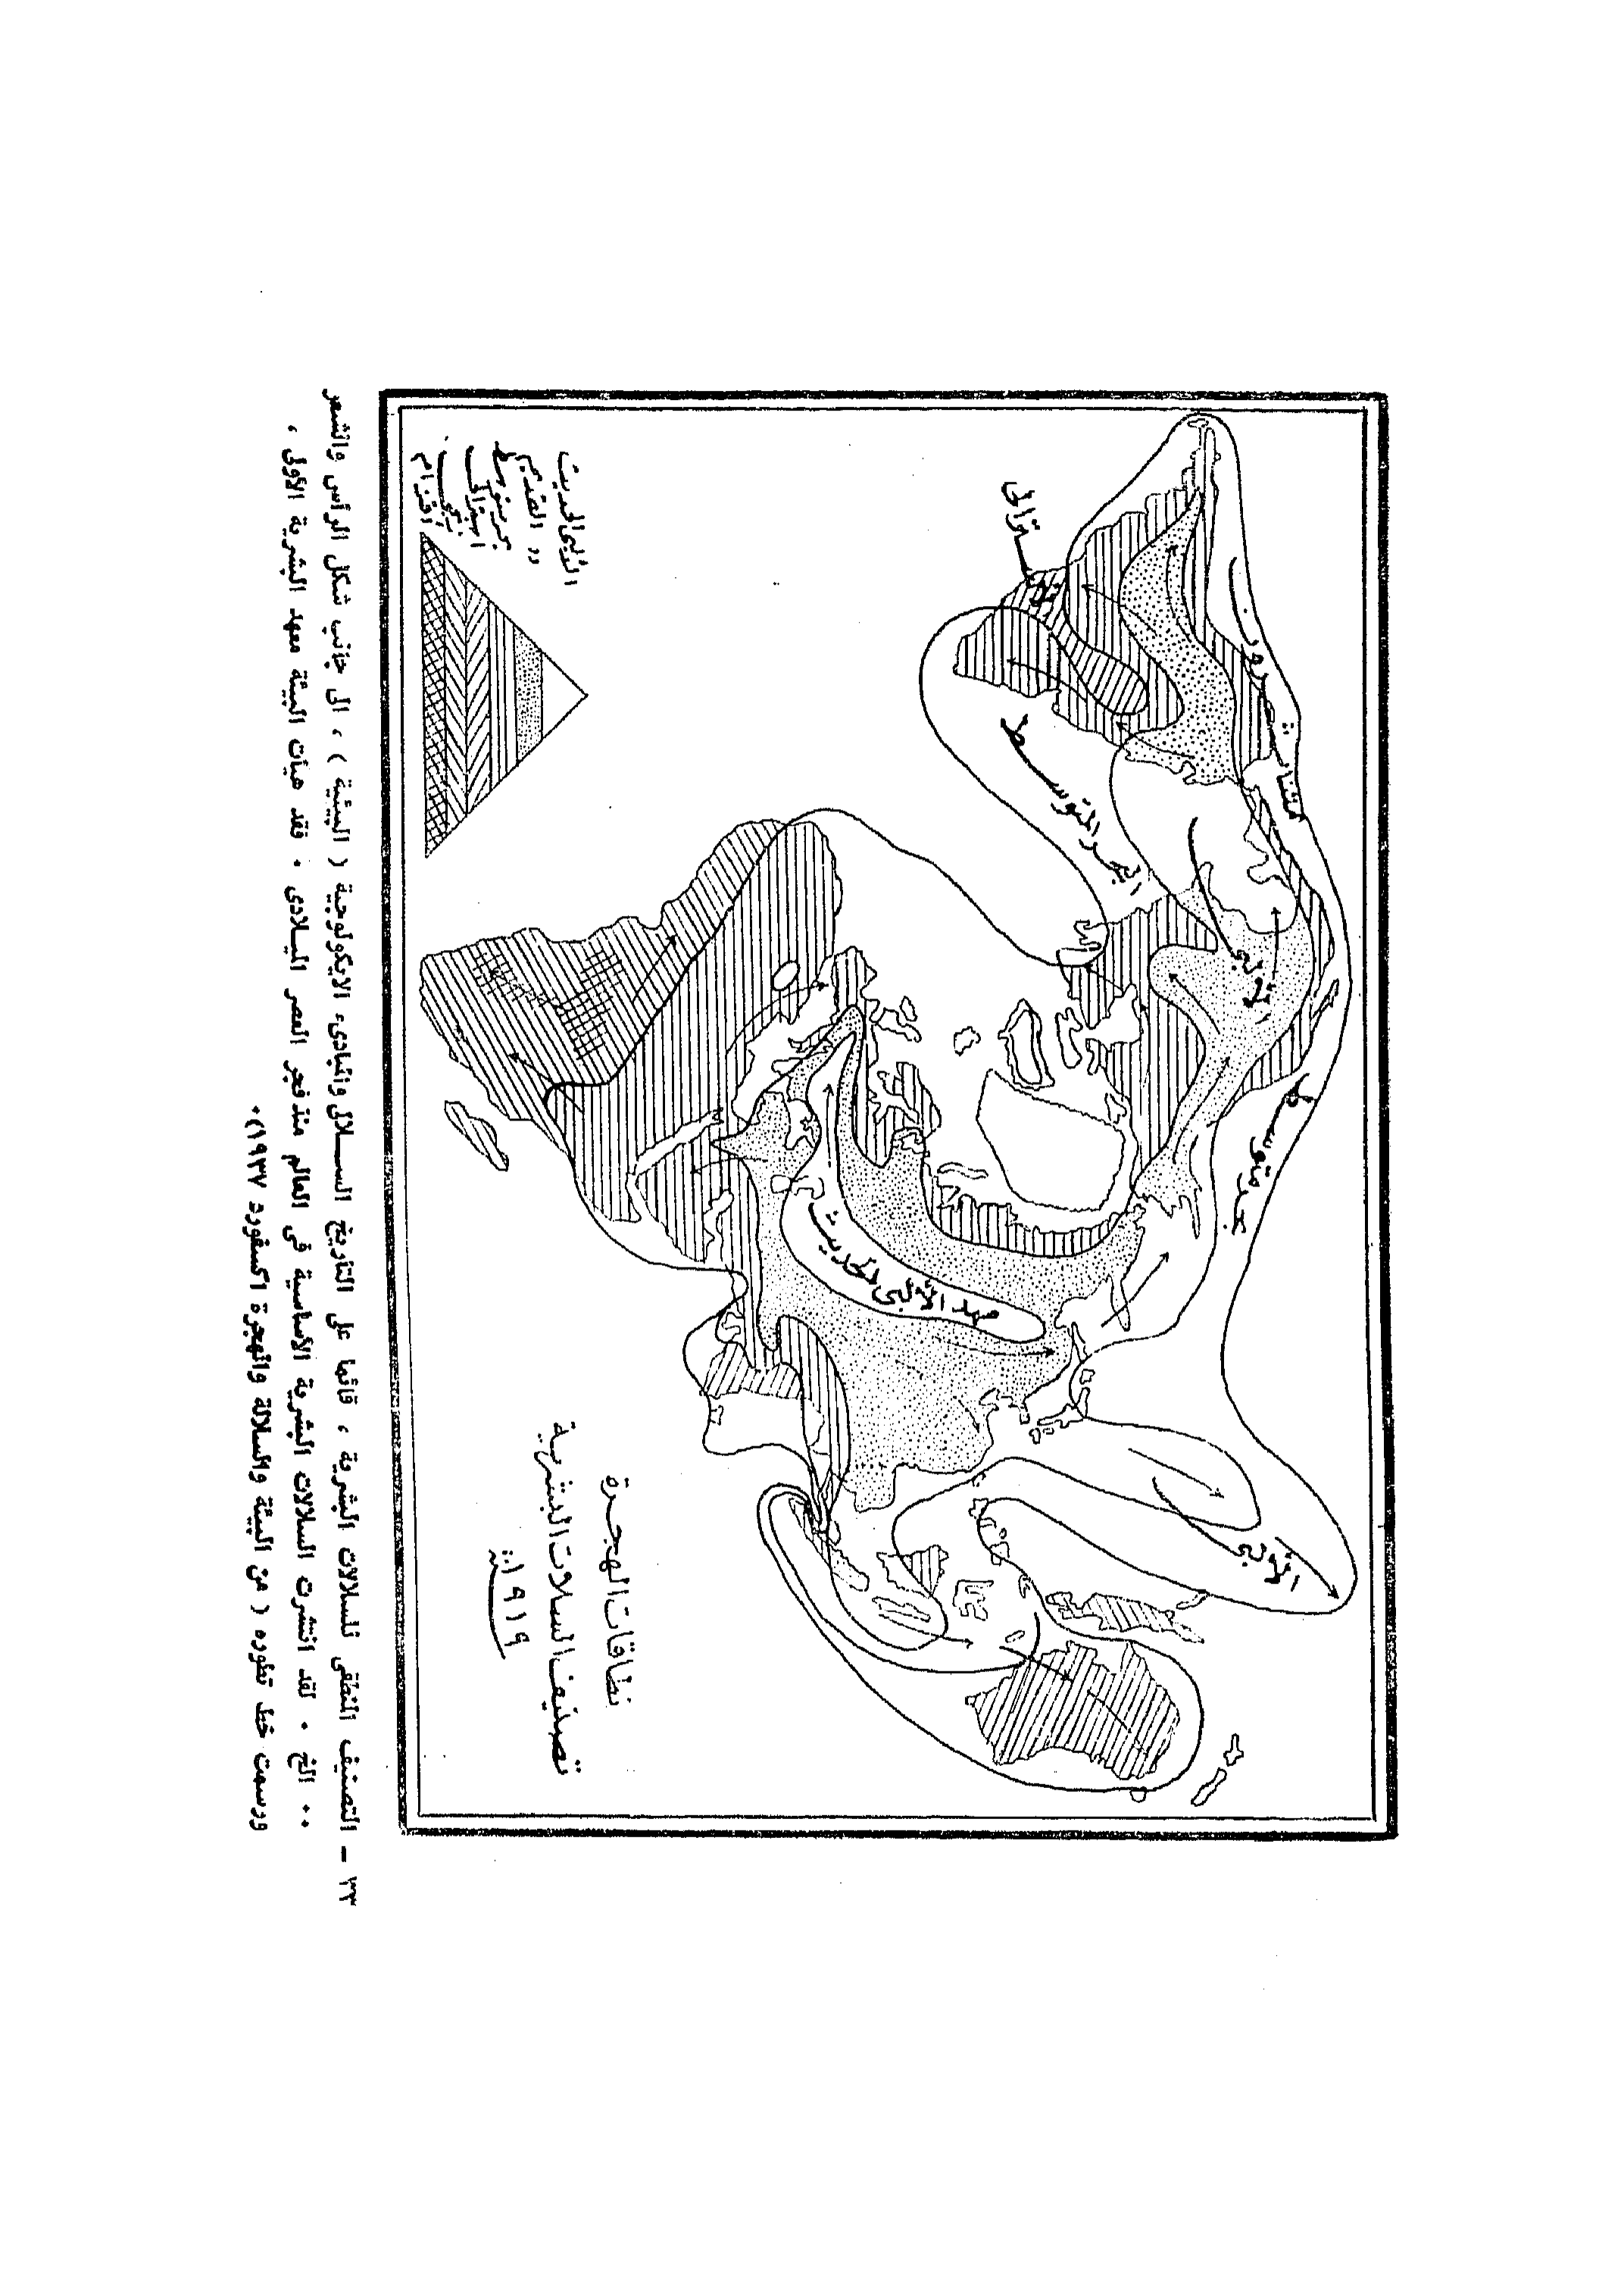 نطاقات الهجرة
تصنيف السلالات البشرية
١٩١٩
مهد الألبى الحديث
الألبى
الألبى
بحر متوسط
البحر المتوسط
استرالى
الألبى الحديث
رر القديم
بحر متوسط
استرالى
زنجى
اقزام
٣٣ - التصنيف المنطقى للسلالات البشرية ، قائما على التاريخ السلالى والمبادىء الايكولوجية ( البيئية ) ، الى جانب شكل الرأس والشعر
٠٠ الخ ٠ لقد انتشرت السلالات البشرية الأساسية فى العالم منذ فجر العصر الميلادى ٠ فقد هيأت البيئة مهد البشرية الأولى ،
ورسمت خط تطوره ( من البيئة والسلالة والهجرة اكسفورد ١٩٣٧)٠